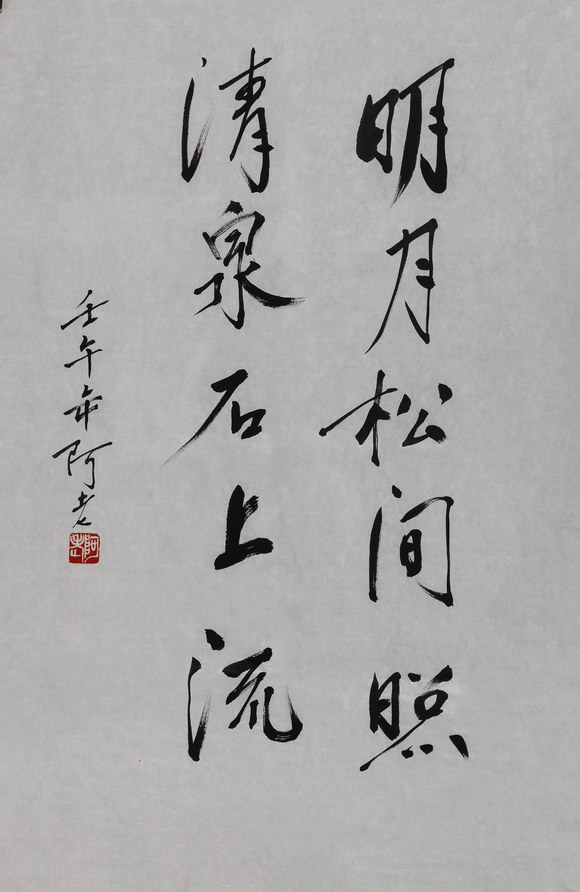 明月松间照
清泉石上流
壬午年阿老
阿老